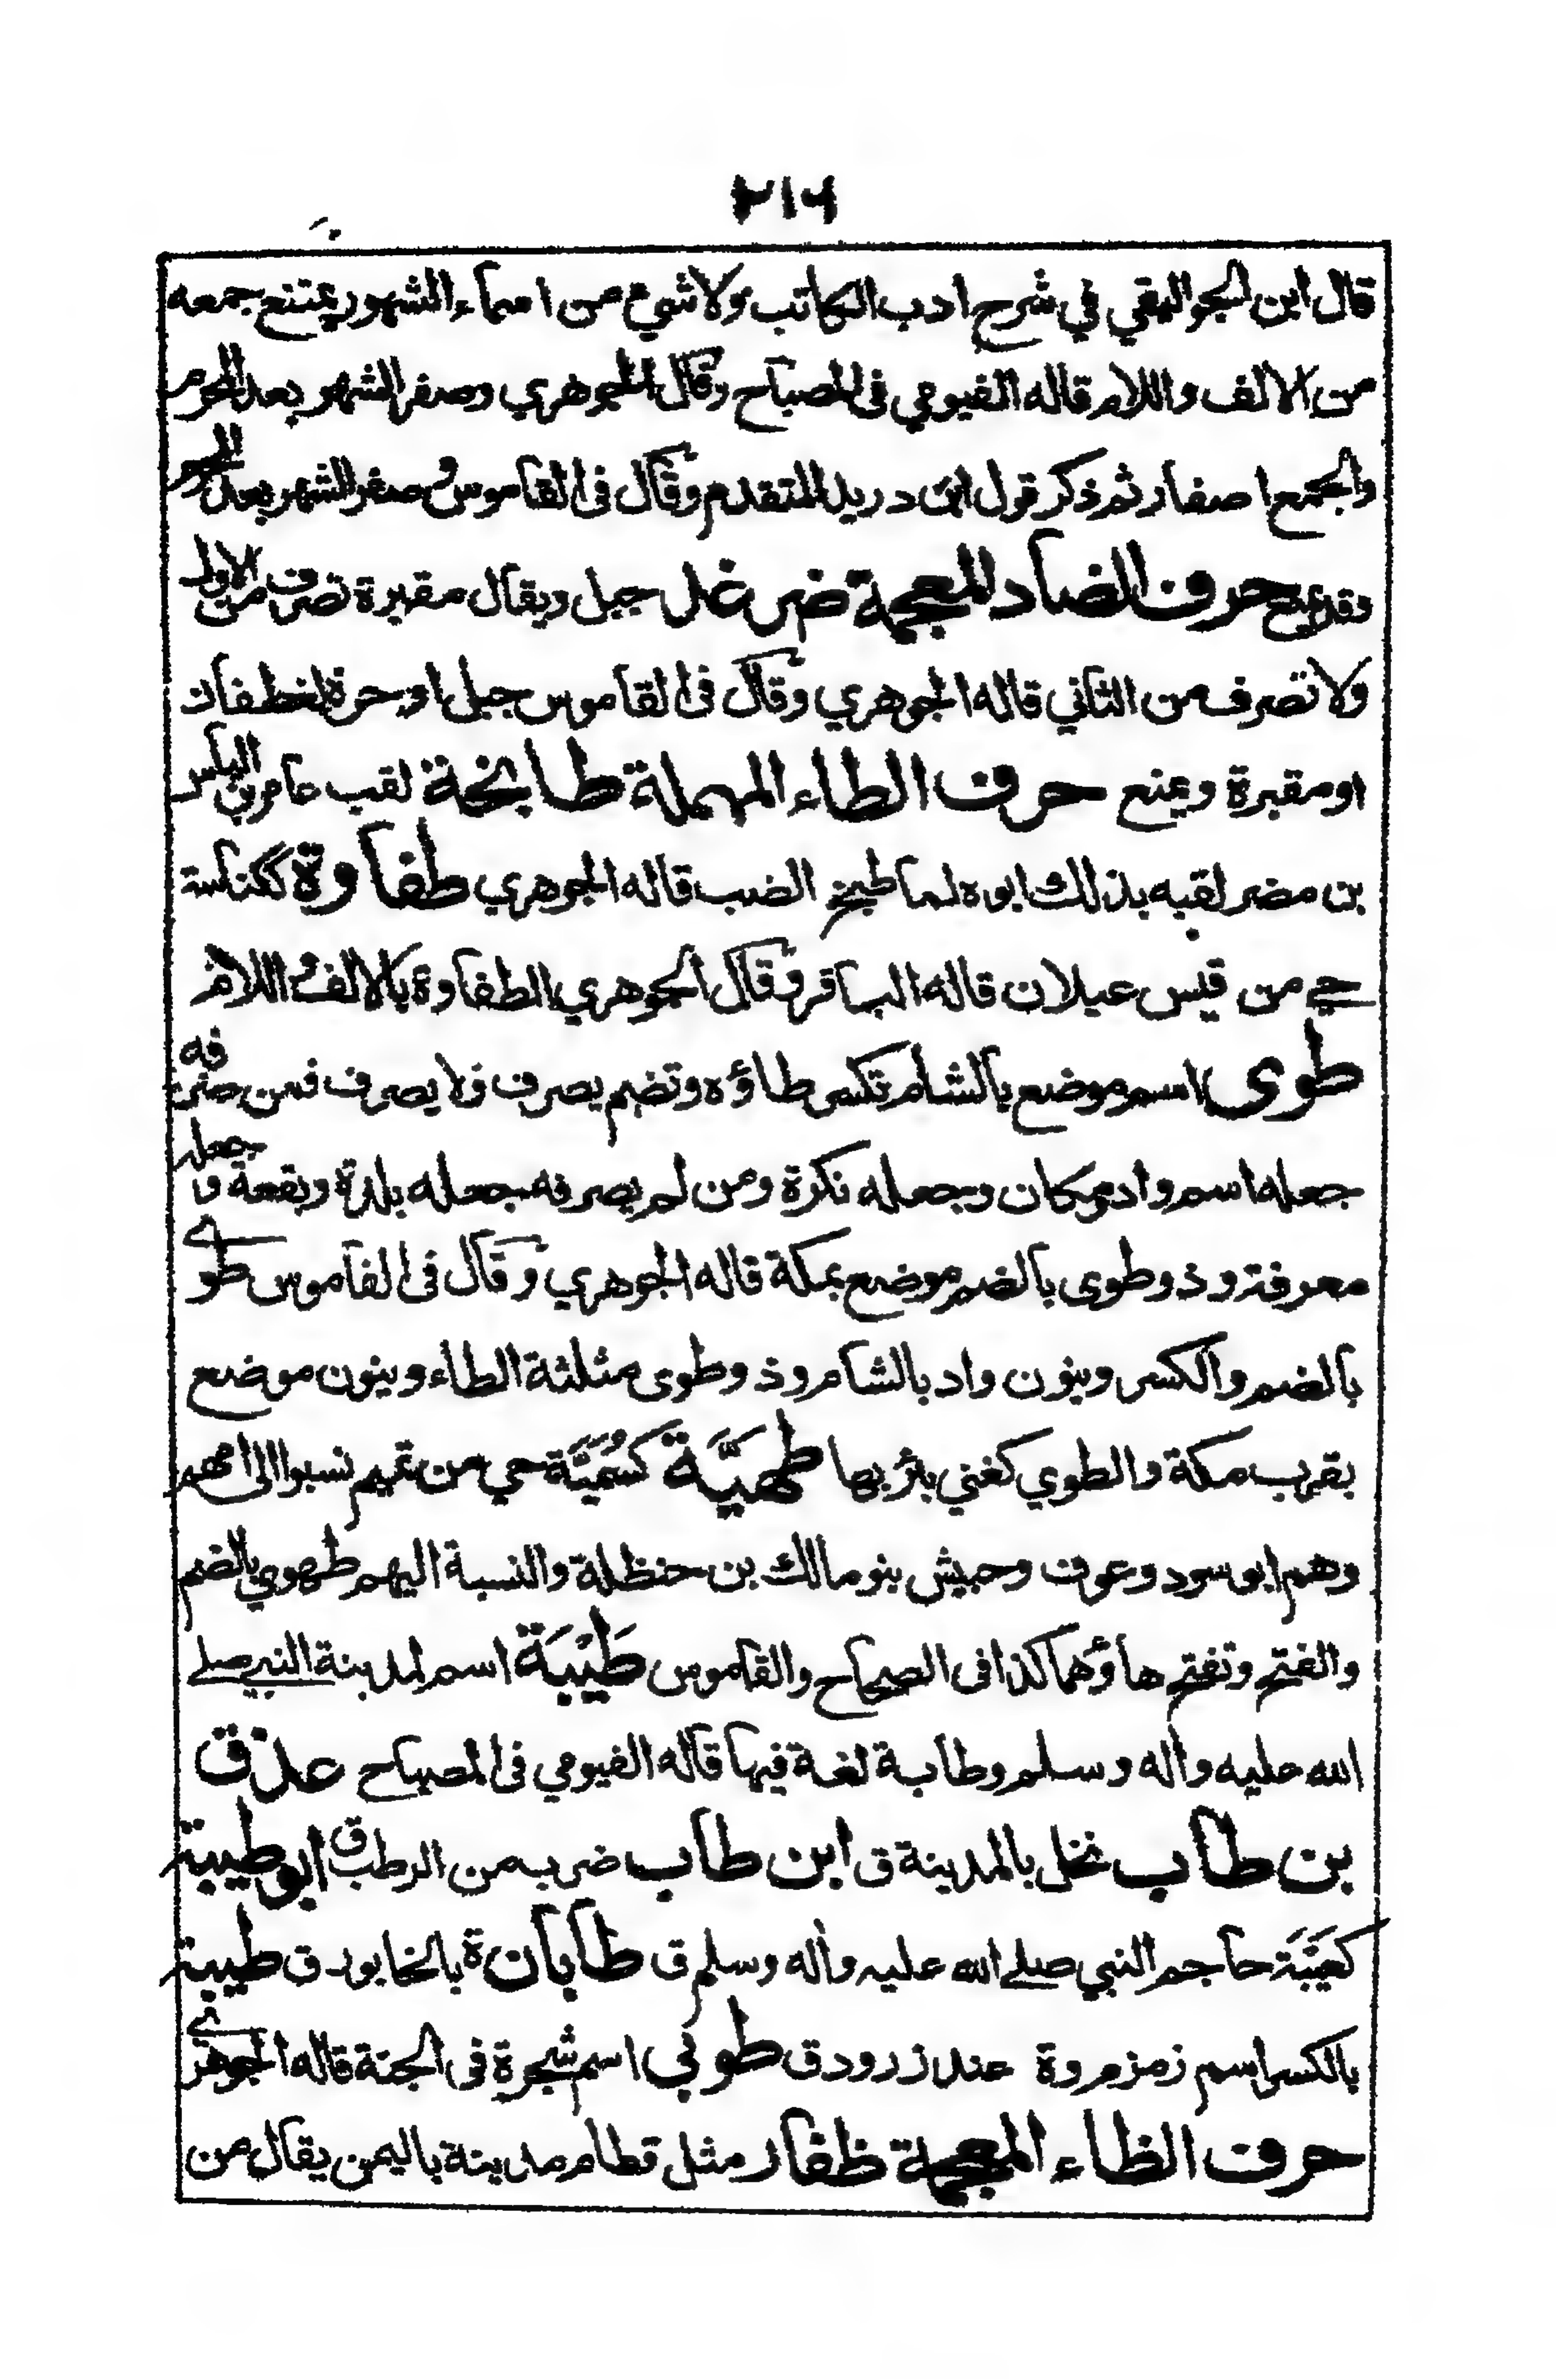 ٢١٦
قال ابن الجواليقي في شرح ادب الكاتب ولا شيء من اسماء الشهور يمتنع جمعه
من الالف واللام قاله الفيومي فى المصباح وقال الجوهري وصفر الشهر بعد المحرم
والجمع اصفار ثم ذكر قول ابن دريد المتقدم وقال فى القاموس وصفر الشهر بعد المحرم
وقد يمنع حرف الضاد المعجمة ضرغد جبل ويقال مقبرة تصرف من الاول
ولا تصرف من الثاني قاله الجوهري وقال فى القاموس جبل او حرة لغطفان
او مقبرة ويمنع حرف الطاء المهملة طابخة لقب عامر بن الياس
بن مضر لقبه بذلك ابوه لما طبخ الضب قاله الجوهري طفاوة ككناسة
حي من قيس عيلان قاله الباقر وقال الجوهري الطفاوة بالالف واللام
طوى اسم موضع بالشام تكسر طاؤه وتضم يصرف ولا يصرف فمن صرفه
جعله اسم واد ومكان وجعله نكرة ومن لم يصرفه جعله بلدة وبقعة وجعله
معرفة وذو طوى بالضم موضع بمكة قاله الجوهري وقال فى القاموس طوے
بالضم والكسر وينون واد بالشام وذو طوى مثلثة الطاء وينون موضع
بقرب مكة والطوي كغني بئر بها طهيَّة كسُمَيَّة حي من تميم نسبوا الى امهم
وهم ابو سود وعوف وحبيش بنو مالك بن حنظلة والنسبة اليهم طهوي بالضم
والفتح وتفتح هاؤهما كذا فى الصحاح والقاموس طَيْبَة اسم لمدينة النبي صلے
الله عليه واله وسلم وطابة لغة فيها قاله الفيومي فى المصباح عذق
بن طاب نخل بالمدينة ق ابن طاب ضرب من الرطب ق ابو طيبة
كعَيَبَة حاجم النبي صلے الله عليه واله وسلم ق طابان ة بالخابور ق طيبة
بالكسر اسم زمزم وة عند زرود ق طوبي اسم شجرة فى الجنة قاله الجوهرے
حرف الظاء المعجمة ظفار مثل قطام مدينة باليمن يقال من